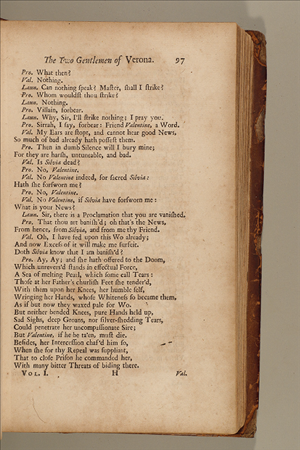 The Two Gentlemen of Verona. 97
Pro. What then?
Val. Nothing.
Laun. Can nothing speak? Master, shall I strike?
Pro. Whom wouldst thou strike?
Laun. Nothing.
Pro. Villain, forbear.
Laun. Why, Sir, I'll strike nothing; I pray you.
Pro. Sirrah, I say, forbear: Friend Valentine, a Word.
Val. My Ears are stopt, and cannot hear good News,
So much of bad already hath possest them.
Pro. Then in dumb Silence will I bury mine;
For they are harsh, untuneable, and bad.
Val. Is Silvia dead?
Pro. No, Valentine.
Val. No Valentine indeed, for sacred Silvia:
Hath she forsworn me?
Pro. No, Valentine.
Val. No Valentine, if Silvia have forsworn me:
What is your News?
Laun. Sir, there is a Proclamation that you are vanished.
Pro. That thou art banish'd; oh that's the News,
From hence, from Silvia, and from me thy Friend.
Val. Oh, I have fed upon this Wo already;
And now Excess of it will make me surfeit.
Doth Silvia know that I am banish'd?
Pro. Ay, Ay; and she hath offered to the Doom,
Which unrevers'd stands in effectual Force,
A Sea of melting Pearl, which some call Tears:
Those at her Father's churlish Feet she tender'd,
With them upon her Knees, her humble self,
Wringing her Hands, whose Whiteness so became them,
As if but now they waxed pale for Wo.
But neither bended Knees, pure Hands held up,
Sad Sighs, deep Groans, nor silver-shedding Tears,
Could penetrate her uncompassionate Sire;
But Valentine, if he be ta'en, must die.
Besides, her Intercession chaf'd him so,
When she for thy Repeal was suppliant,
That to close Prison he commanded her,
With many bitter Threats of biding there.
VOL. I. H Val.